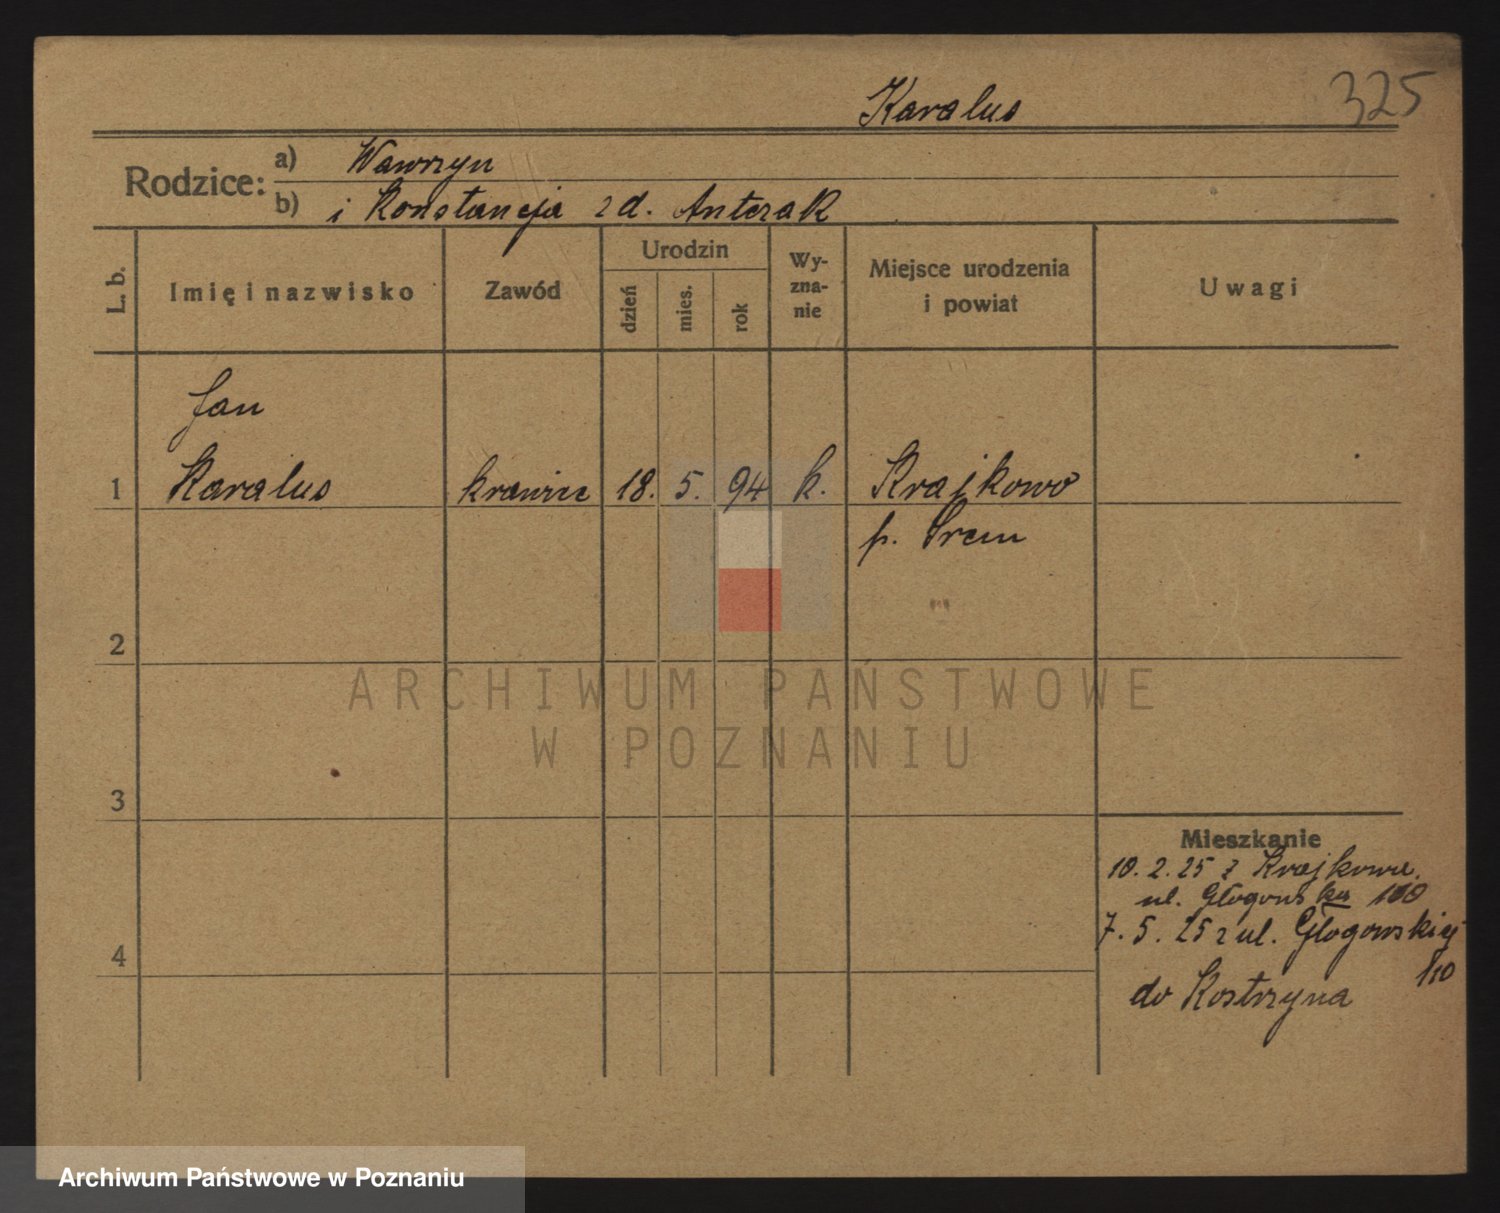 Karalus
325
Rodzice:
a) Wawrzyn
b) i Konstancja z d. Antczak
L. b.
Imię i nazwisko
Zawód
Urodzin
dzień
mies.
rok
Wy-
zna-
nie
Miejsce urodzenia
i powiat
Uwagi
Jan
1 Karalus krawiec 18. 5. 94 k. Krajkowo
p. Śrem
2
3
4
Mieszkanie
10. 2. 25 z Krajkowa.
ul. Głogowska
7. 5. 25 z ul. Głogowskiej
110
do Kostrzyna
ARCHIWUM PAŃSTWOWE
W POZNANIU
Archiwum Państwowe w Poznaniu